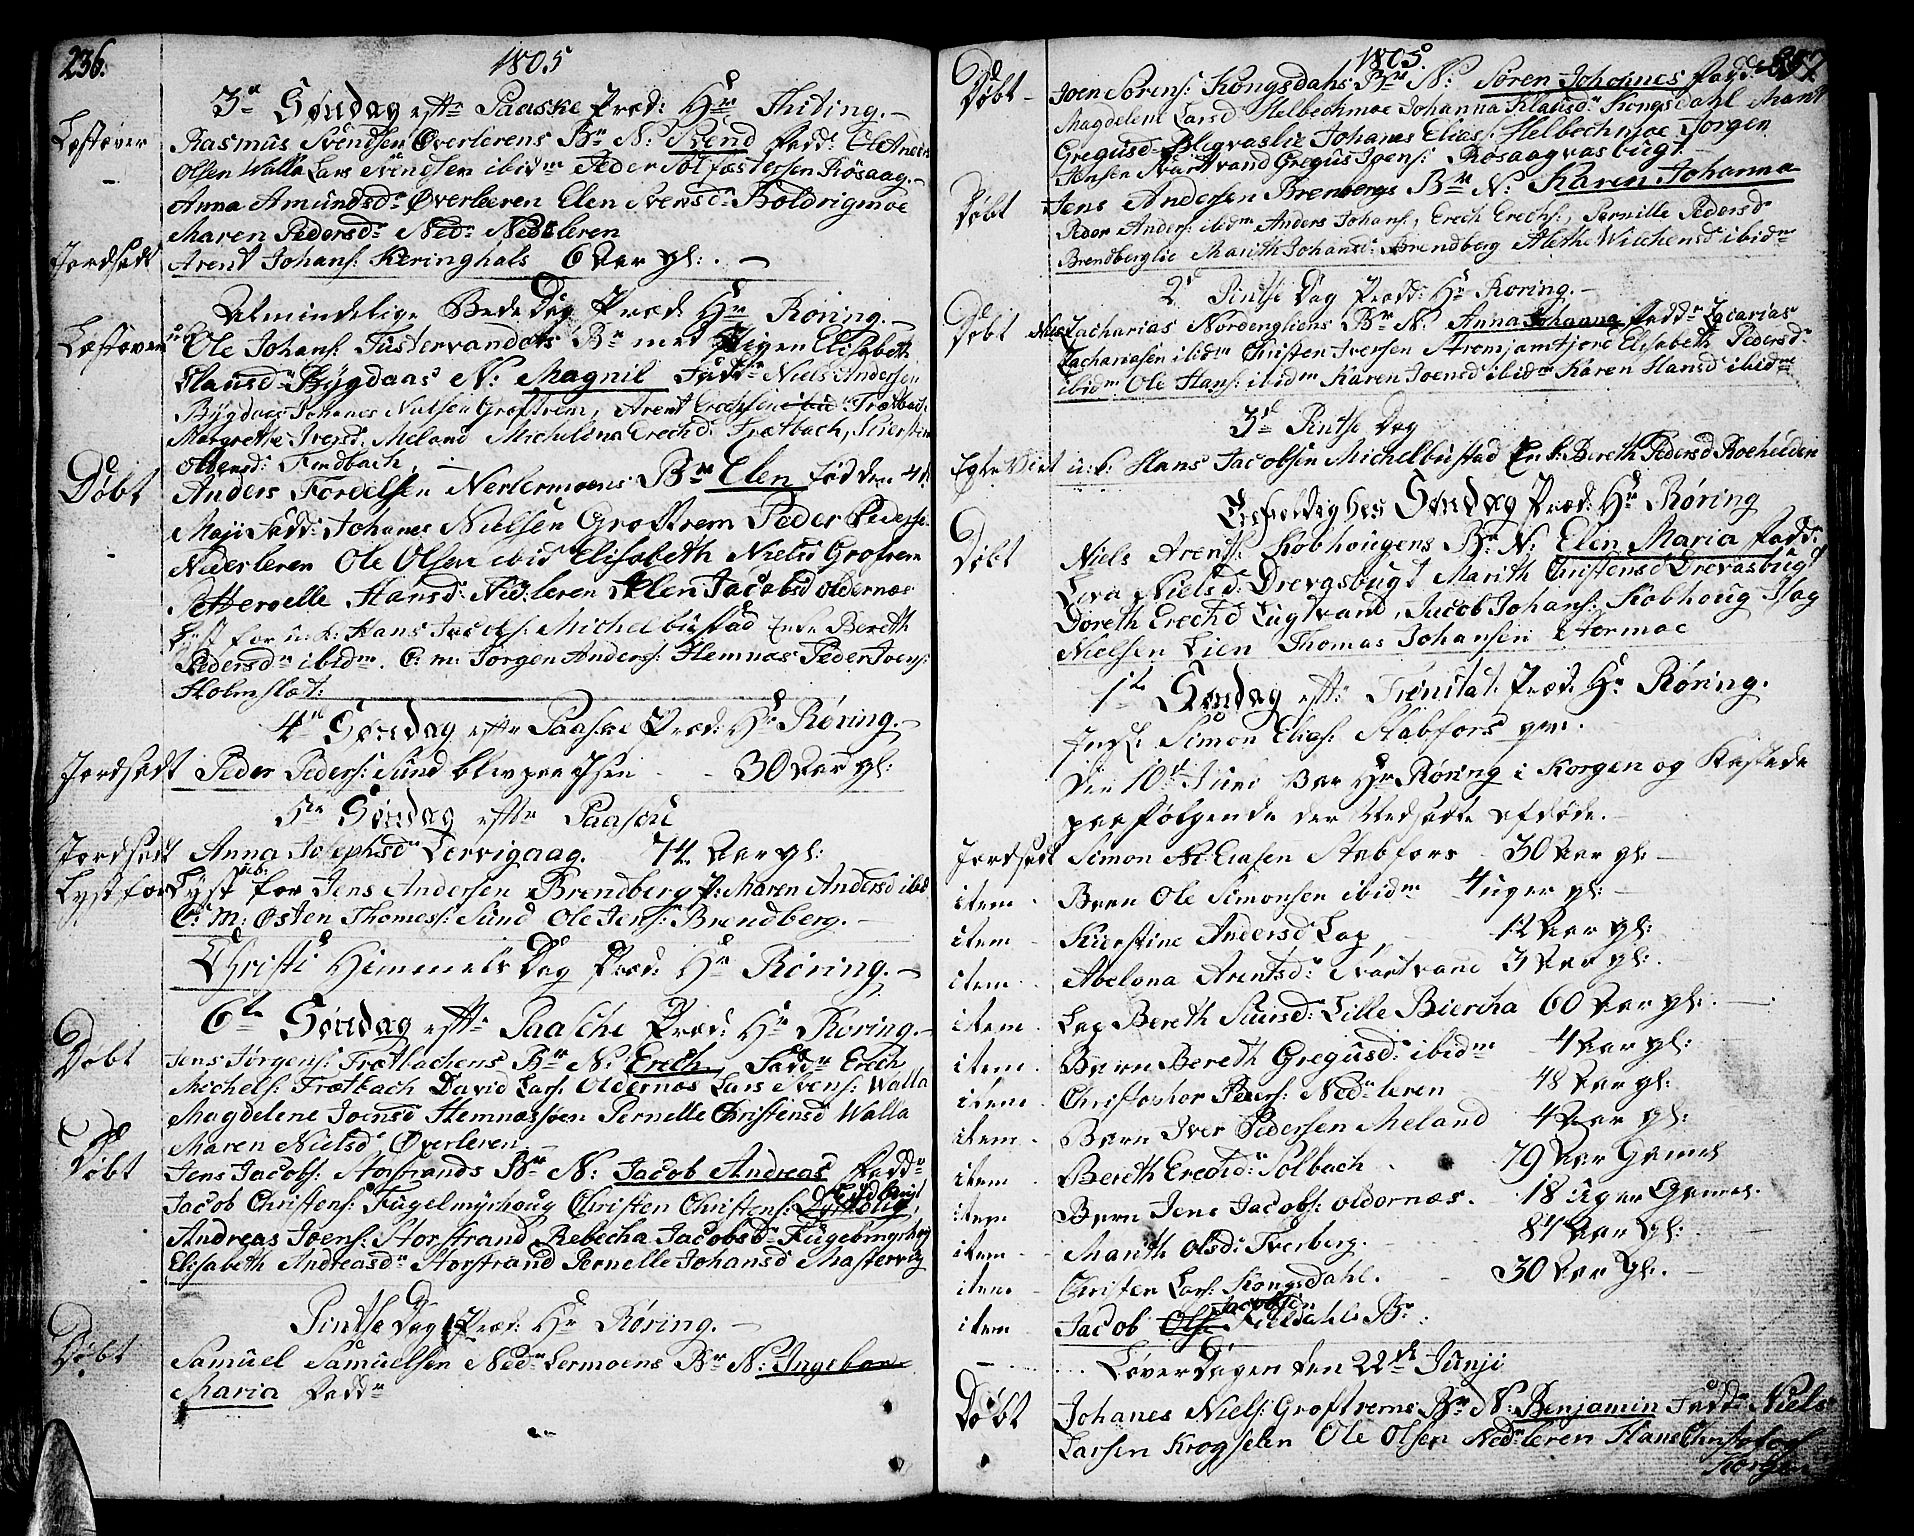 236.
1805
3de Søndag efter Paaske Præd: Hr Thiting.
Læstøver Rasmus Svendsen Øverlerens Bn N: Svend Fadd: Anders
Olsen Walla Lars Svendsen ibidm Peder Solfæstersen Røsaag.
Anna Amundsdr Øverleren Elen Svensdr Boldrigmoe
Maren Pedersdr Nedleren
Jordsadt Arent Johans: Keringhals 6 Aar gl:
Almindelige Bede Dag Præd Hr Røring.
Læstøver Ole Johans: Tustervandets Bn med Pigen Elisabeth
Hansdr Bygdaas N: Magnil Fadd: Niels Andersen
Bygdaas Johanes Nielsen Groftrem, Arent Erechsen ibid Frætbach
Margrethe Iversd: Meland Michelina Erechd: Frætbach, Kierstin
Oldensd: Findbach.
Døbt Anders Fordelsen Nerlermoens Bn Elen fød den 4de
Maji Fadd: Johanes Nielsen Groftrem Peder Peders:
Nederleren Ole Olsen ibid Elisabeth Nielsd Grofrem
Petternelle Hansd: Nedleren Elen Jacobsd Oldernæs
Lyst for u: k: Hans Jacobs: Michelbustad Enke Bereth
Pedersdr ibidm. C: m: Jørgen Anders: Hemnæs Peder Joens:
Holmslet:
4de Søndag efter Paaske Præd: Hr Røring.
Jordsadt Peder Peders: Sund blev paa Isen 30 Aar gl:
5te Søndag efter Paaske
Jordsadt Anna Josephsdr Lervigaag. 74 Aar gl:
Lyst for Lyst for Jens Andersen Brendberg P: Maren Andersd ibid
C: M: Østen Thomess: Sund Ole Jens: Brendberg.
Christi Himmels Dag Præd: Hr Røring.
6te Søndag efter Paasche Præd: Hr Røring.
Døbt Jens Jørgens: Frætbachens Bn N: Erech, Fadd: Erech
Michels: Frætbach David Lars: Oldernæs Lars Svens: Walla
Magdelene Joensd Hemnæsøen Pernelle Christensd Walla
Maren Nielsdr Øverleren
Døbt Jens Jacobs: Storstrands Bn N: Jacob Andreas Fadd:
Jacob Christens: Fugelmyrhoug Christen Christens:
Andreas Joens: Storstrand Rebecha Jacobsd: Fugelmyrhoug
Elisabeth Andreasdr Storstrand Pernelle Johansd Mastervig
Pintse Dag Præd: Hr Røring.
Døbt Samuel Samuelsen Nedr Lermoens Bn N: Ingebor
Maria Fadd:
1805.
Døbt Joen Sørens: Kongsdahs Bn N: Søren Johannes Fadd:
Magdelene Larsd Helbechmoe Johanna Klausdr Kongsdahl Marit
Gregusd Blegvaslie Johanes Elias: Helbechmoe Jørgen
Jensen Svartvand Gregus Joens: Røsaagvasbugt
Døbt Jens Andersen Brenbergs Bn N: Karen Johanna
Peder Anders: ibidm Anders Johans, Erech Erechs:, Pernille Pedersd
Brendberglie Marith Johansd: Brendberg Alethe Wilchensd ibidm
2d Pintse Dag Præd: Hr Røring.
Døbt Zacharias Nordengliens Bn N: Anna Johanna Fadd: Zacarias
Zachariasen ibidm Christen Iversen Strømjamtjord Elisabeth Pedersdr
ibidm Ole Hans: ibidm Karen Joensd ibidm Karen Hansd ibidm
3d Pintse Dag
Egteviet u: k: Hans Jacobsen Michelbustad Enk: Bereth Pedersd
Trefoldighes Søndag Præd: Hr Røring
Døbt Niels Arents: Kobhougens Bn N: Elen Maria Fadd:
Lina Nielsd: Drevasbugt Marith Christensd Drevasbugt
Doreth Erechd Lugtvand, Jacob Johans: Kobhoug Hag
Nielsen Lien Thomas Johansen Stormoe
1te Søndag efter Trinitat: Præd Hr Røring.
Ingl: Simon Elias: Stabfors
Den 10de Juni Bar Hr Røring i Korgen og Kastede
paa følgende der Nedsatte afdøde.
Jordsadt Simon Eliasen Stabfors 30 Aar gl:
item Barn Ole Simonsen ibidm 4 uger gl:
item Kierstine Andersd Lap 12 Aar gl:
item Abelona Arentsd: Svartvand 3 Aar gl:
item Lap Bereth Siursd: Lille Biercha 60 Aar gl:
item Barn Bereth Gregusd: ibidm 4 Aar gl:
item Christopher Peders: Nedrleren 48 Aar gl:
item Barn Iver Pedersen Meland 4 Aar gl:
item Bereth Erechd: Solbach 79 Aar Gamel
item Barn Jens Jacobs: Oldernæs. 18 uger Gamel.
item Marith Olsd: Tverberg. 84 Aar Gl:
item Christen Lars: Kongsdahl. 30 Aar Gl:
item Jacob Jacobsen Kieldahls Bn:
Løverdagen den 22de Junji
Døbt Johanes Niels: Groftrems Bn N: Benjamin Fadd: Niels
Larsen Krogselen Ole Olsen Nedrleren Hans Christophers
Korgen